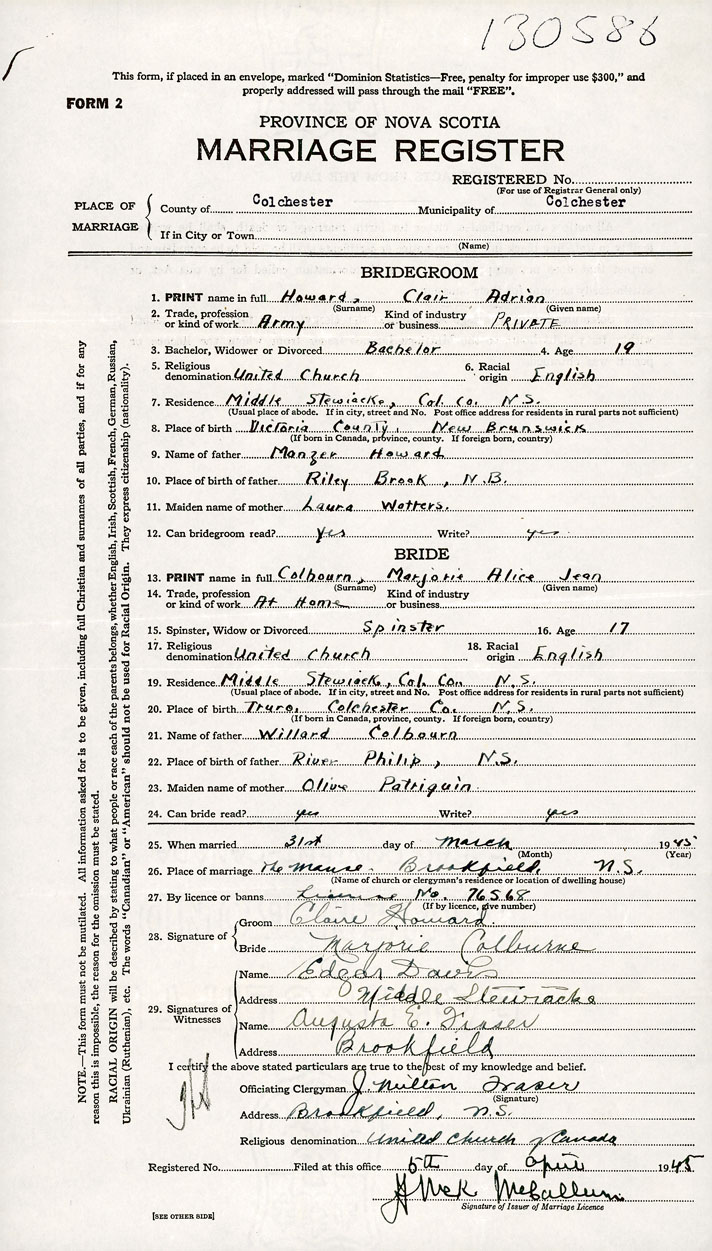 130586
This form, if placed in an envelope, marked "Dominion Statistics—Free, penalty for improper use $300," and
properly addressed will pass through the mail "FREE".
FORM 2
PROVINCE OF NOVA SCOTIA
MARRIAGE REGISTER
REGISTERED No.
(For use of Registrar General only)
PLACE OF MARRIAGE
County of Colchester Municipality of Colchester
If in City or Town
(Name)
BRIDEGROOM
1. PRINT name in full Howard, Clair Adrian
(Surname) (Given name)
2. Trade, profession or kind of work Army Kind of industry or business PRIVATE
3. Bachelor, Widower or Divorced Bachelor 4. Age 19
5. Religious denomination United Church 6. Racial origin English
7. Residence Middle Stewiacke, Col. Co. N.S.
(Usual place of abode. If in city, street and No. Post office address for residents in rural parts not sufficient)
8. Place of birth Victoria County, New Brunswick
(If born in Canada, province, county. If foreign born, country)
9. Name of father Manzer Howard
10. Place of birth of father Riley Brook, N.B.
11. Maiden name of mother Laura Watters.
12. Can bridegroom read? yes Write? yes
BRIDE
13. PRINT name in full Colbourn, Marjorie Alice Jean
(Surname) (Given name)
14. Trade, profession or kind of work At Home Kind of industry or business
15. Spinster, Widow or Divorced Spinster 16. Age 17
17. Religious denomination United Church 18. Racial origin English
19. Residence Middle Stewiacke, Col. Co. N.S.
(Usual place of abode. If in city, street and No. Post office address for residents in rural parts not sufficient)
20. Place of birth Truro, Colchester Co. N.S.
(If born in Canada, province, county. If foreign born, country)
21. Name of father Willard Colbourn
22. Place of birth of father River Philip, N.S.
23. Maiden name of mother Olive Patriquin
24. Can bride read? yes Write? yes
25. When married 31st day of March 1945
(Month) (Year)
26. Place of marriage The manse Brookfield, N.S.
(Name of church or clergyman's residence or location of dwelling house)
27. By licence or banns License No. 76568
(If by licence, give number)
28. Signature of
Groom Claire Howard.
Bride Marjorie Colburne
29. Signatures of Witnesses
Name Edgar Davis
Address Middle Stewiacke
Name Augusta E. Fraser
Address Brookfield
I certify the above stated particulars are true to the best of my knowledge and belief.
Officiating Clergyman J. Milton Fraser
(Signature)
Address Brookfield, N.S.
Religious denomination United Church of Canada
Registered No. Filed at this office 5th day of April 1945
McCallum
Signature of Issuer of Marriage Licence
[SEE OTHER SIDE]
NOTE.—This form must not be mutilated. All information asked for is to be given, including full Christian and surnames of all parties, and if for any
reason this is impossible, the reason for the omission must be stated.
RACIAL ORIGIN will be described by stating to what people or race each of the parents belongs, whether English, Irish, Scottish, French, German, Russian,
Ukrainian (Ruthenian), etc. The words "Canadian" or "American" should not be used for Racial Origin. They express citizenship (nationality).